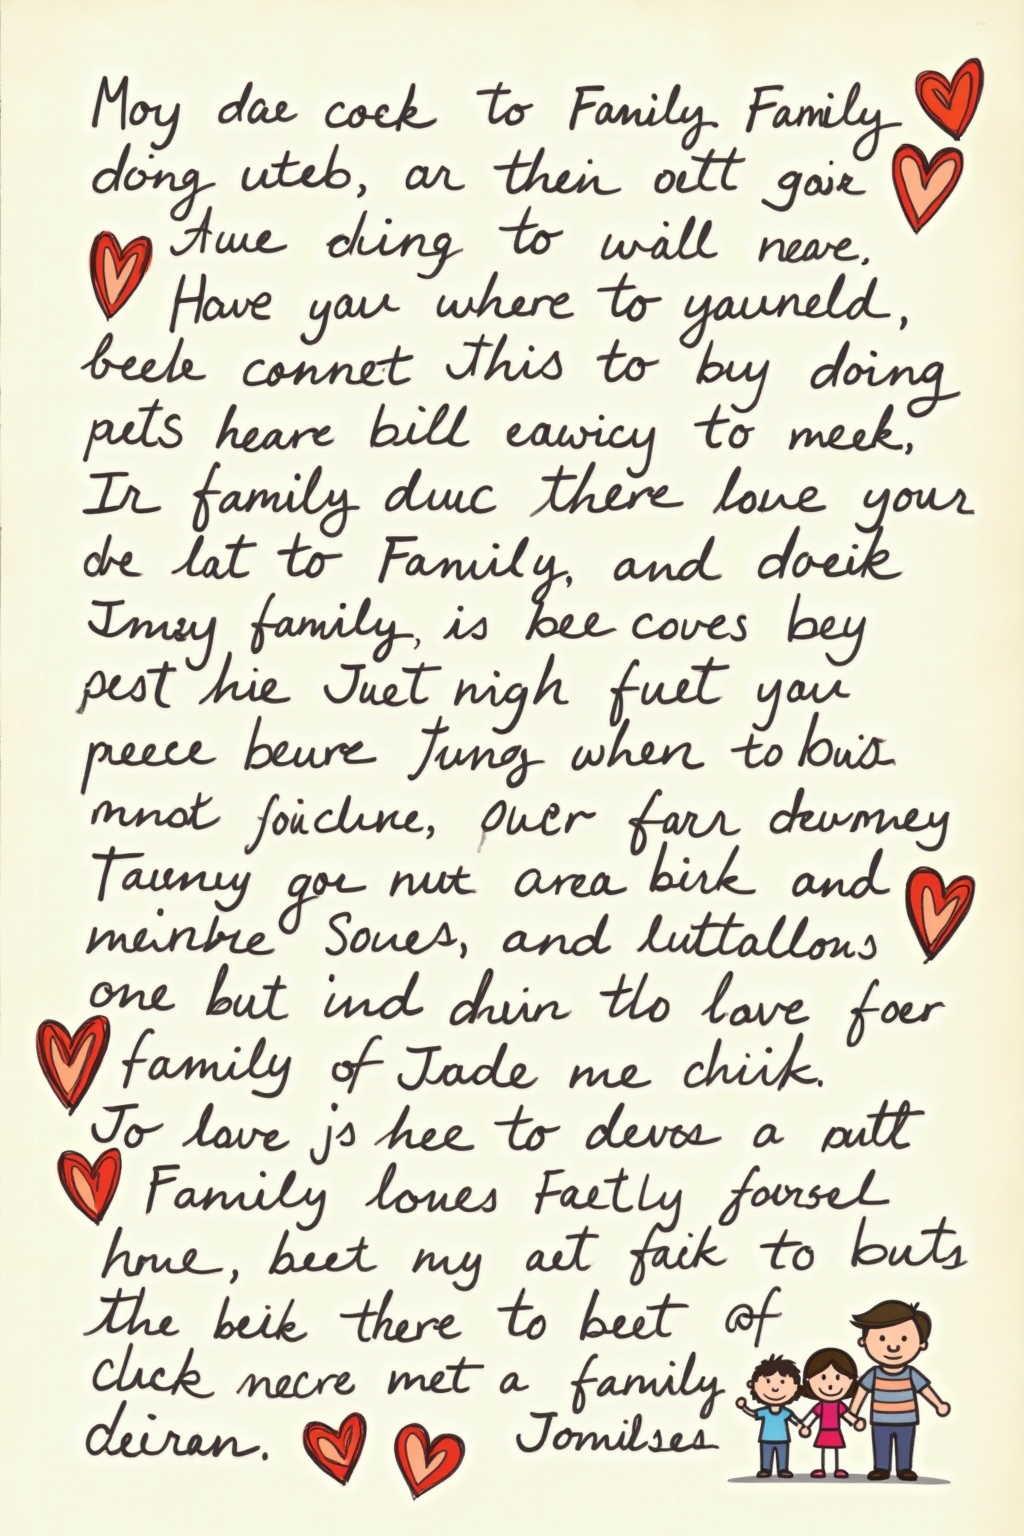 Moy dae cock to Fanily Family
döng uteb, ar then oett goir
Awe dūing to wall neare.
Have yau where to yauneld,
beele connet This to buy doing
pets heare bill eawicy to meek,
Ir family duuc there loue your
dre lat to Family, and doeik
Imuy family, is bee coves bey
pest hie Juet nigh fuet yau
peece beure Jung when to buis
mnot foicline, ouer farr deumney
Taunuy goe nut area birk and
meinbre Soues, and luttallous
one but ind dhin tlo lave foer
family of Jade me chiik.
Jo lave js hee to deves a putt
Family loues Faetly foursel
hrue, beet my aet faik to buts
the beik there to beet of
cluck necre met a family
deiran. Jomilses